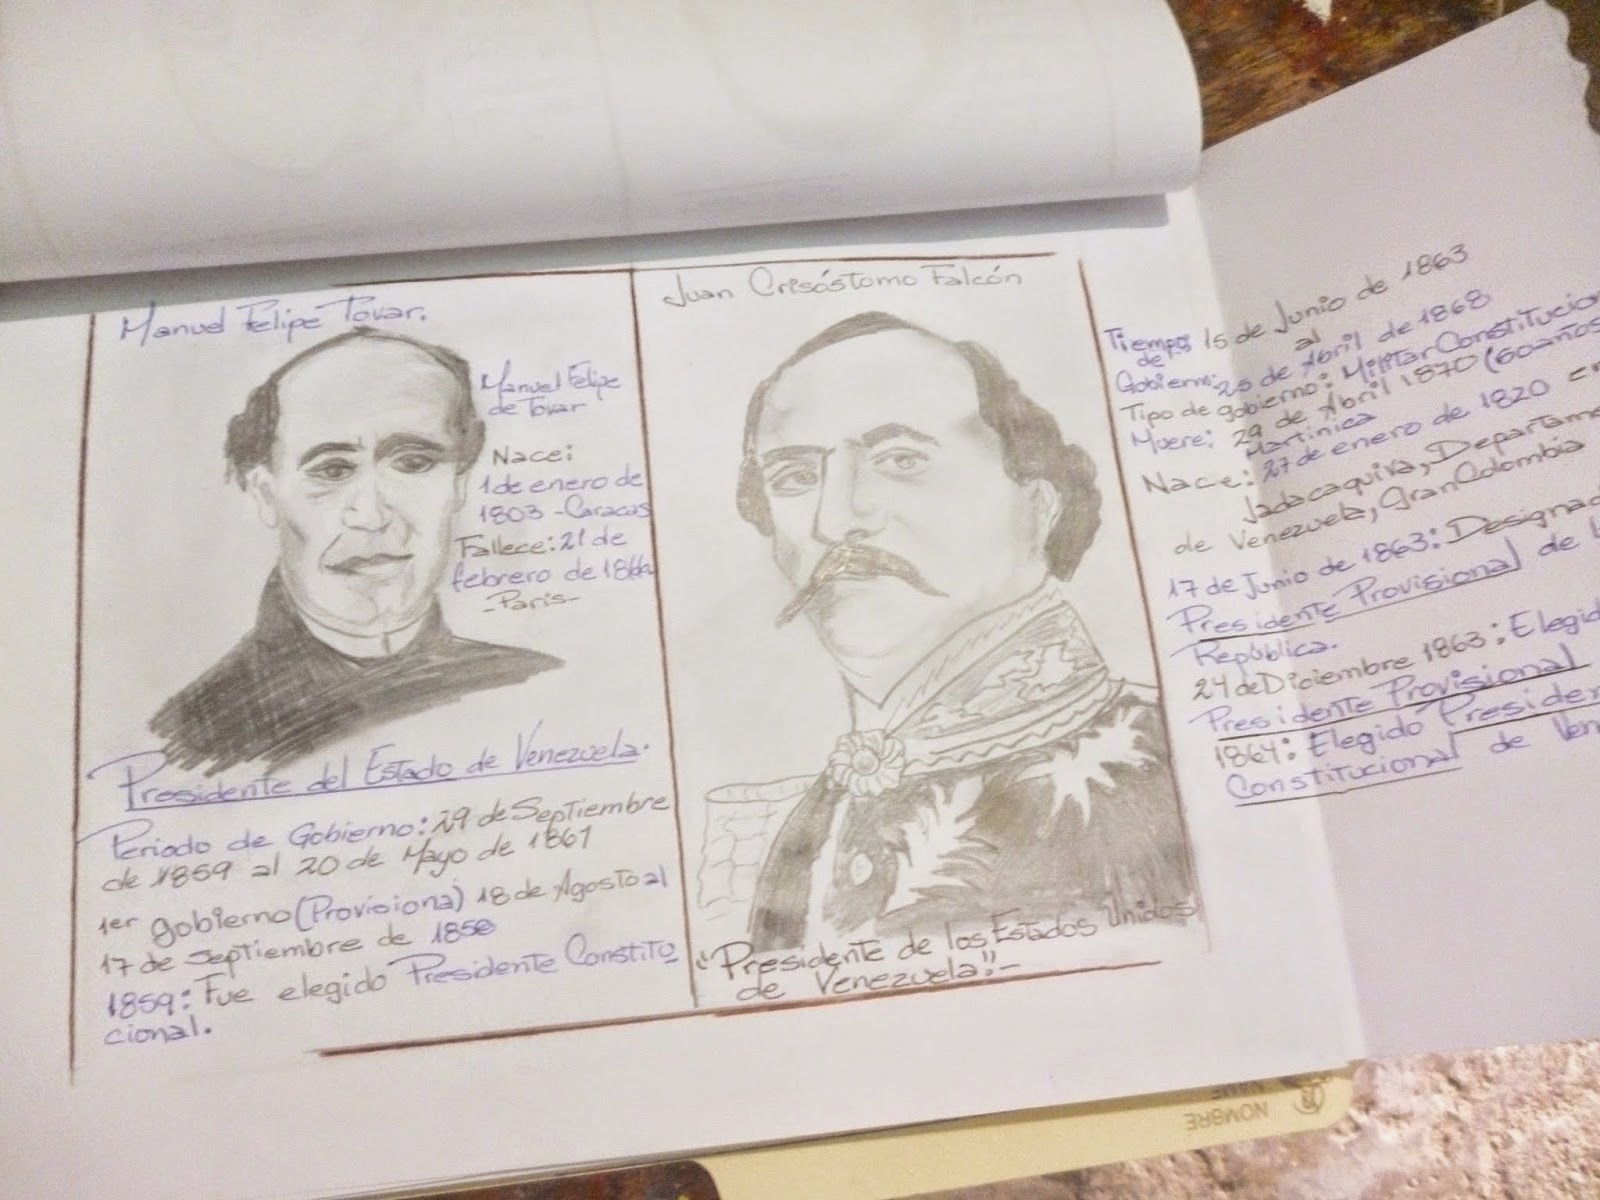 Manuel Felipe Tovar.
Manuel Felipe
de Tovar
Nace:
1 de enero de
1803 - Caracas
Fallece: 21 de
febrero de
- Paris -
Presidente del Estado de Venezuela.
Periodo de Gobierno: 29 de Septiembre
de 1859 al 20 de Mayo de 1861
1er gobierno (Provisional) 18 de Agosto al
17 de Septiembre de
1859: Fue elegido Presidente Constitu
cional.
Juan Crisóstomo Falcón
"Presidente de los Estados Unidos
de Venezuela".-
Tiempo 15 de Junio de 1863
de al
Gobierno: 25 de Abril de 1868
Tipo de gobierno: Militar Constitucion
Muere: 29 de Abril 1870 (50 años
Martinica
Nace: 27 de enero de 1820 en
Jadacaquiva, Departame
de Venezuela, Gran Colombia
17 de Junio de 1863: Designad
Presidente Provisional de l
República.
24 de Diciembre 1863: Elegid
Presidente Provisional
1864: Elegido Presiden
Constitucional de Ven
NOMBRE